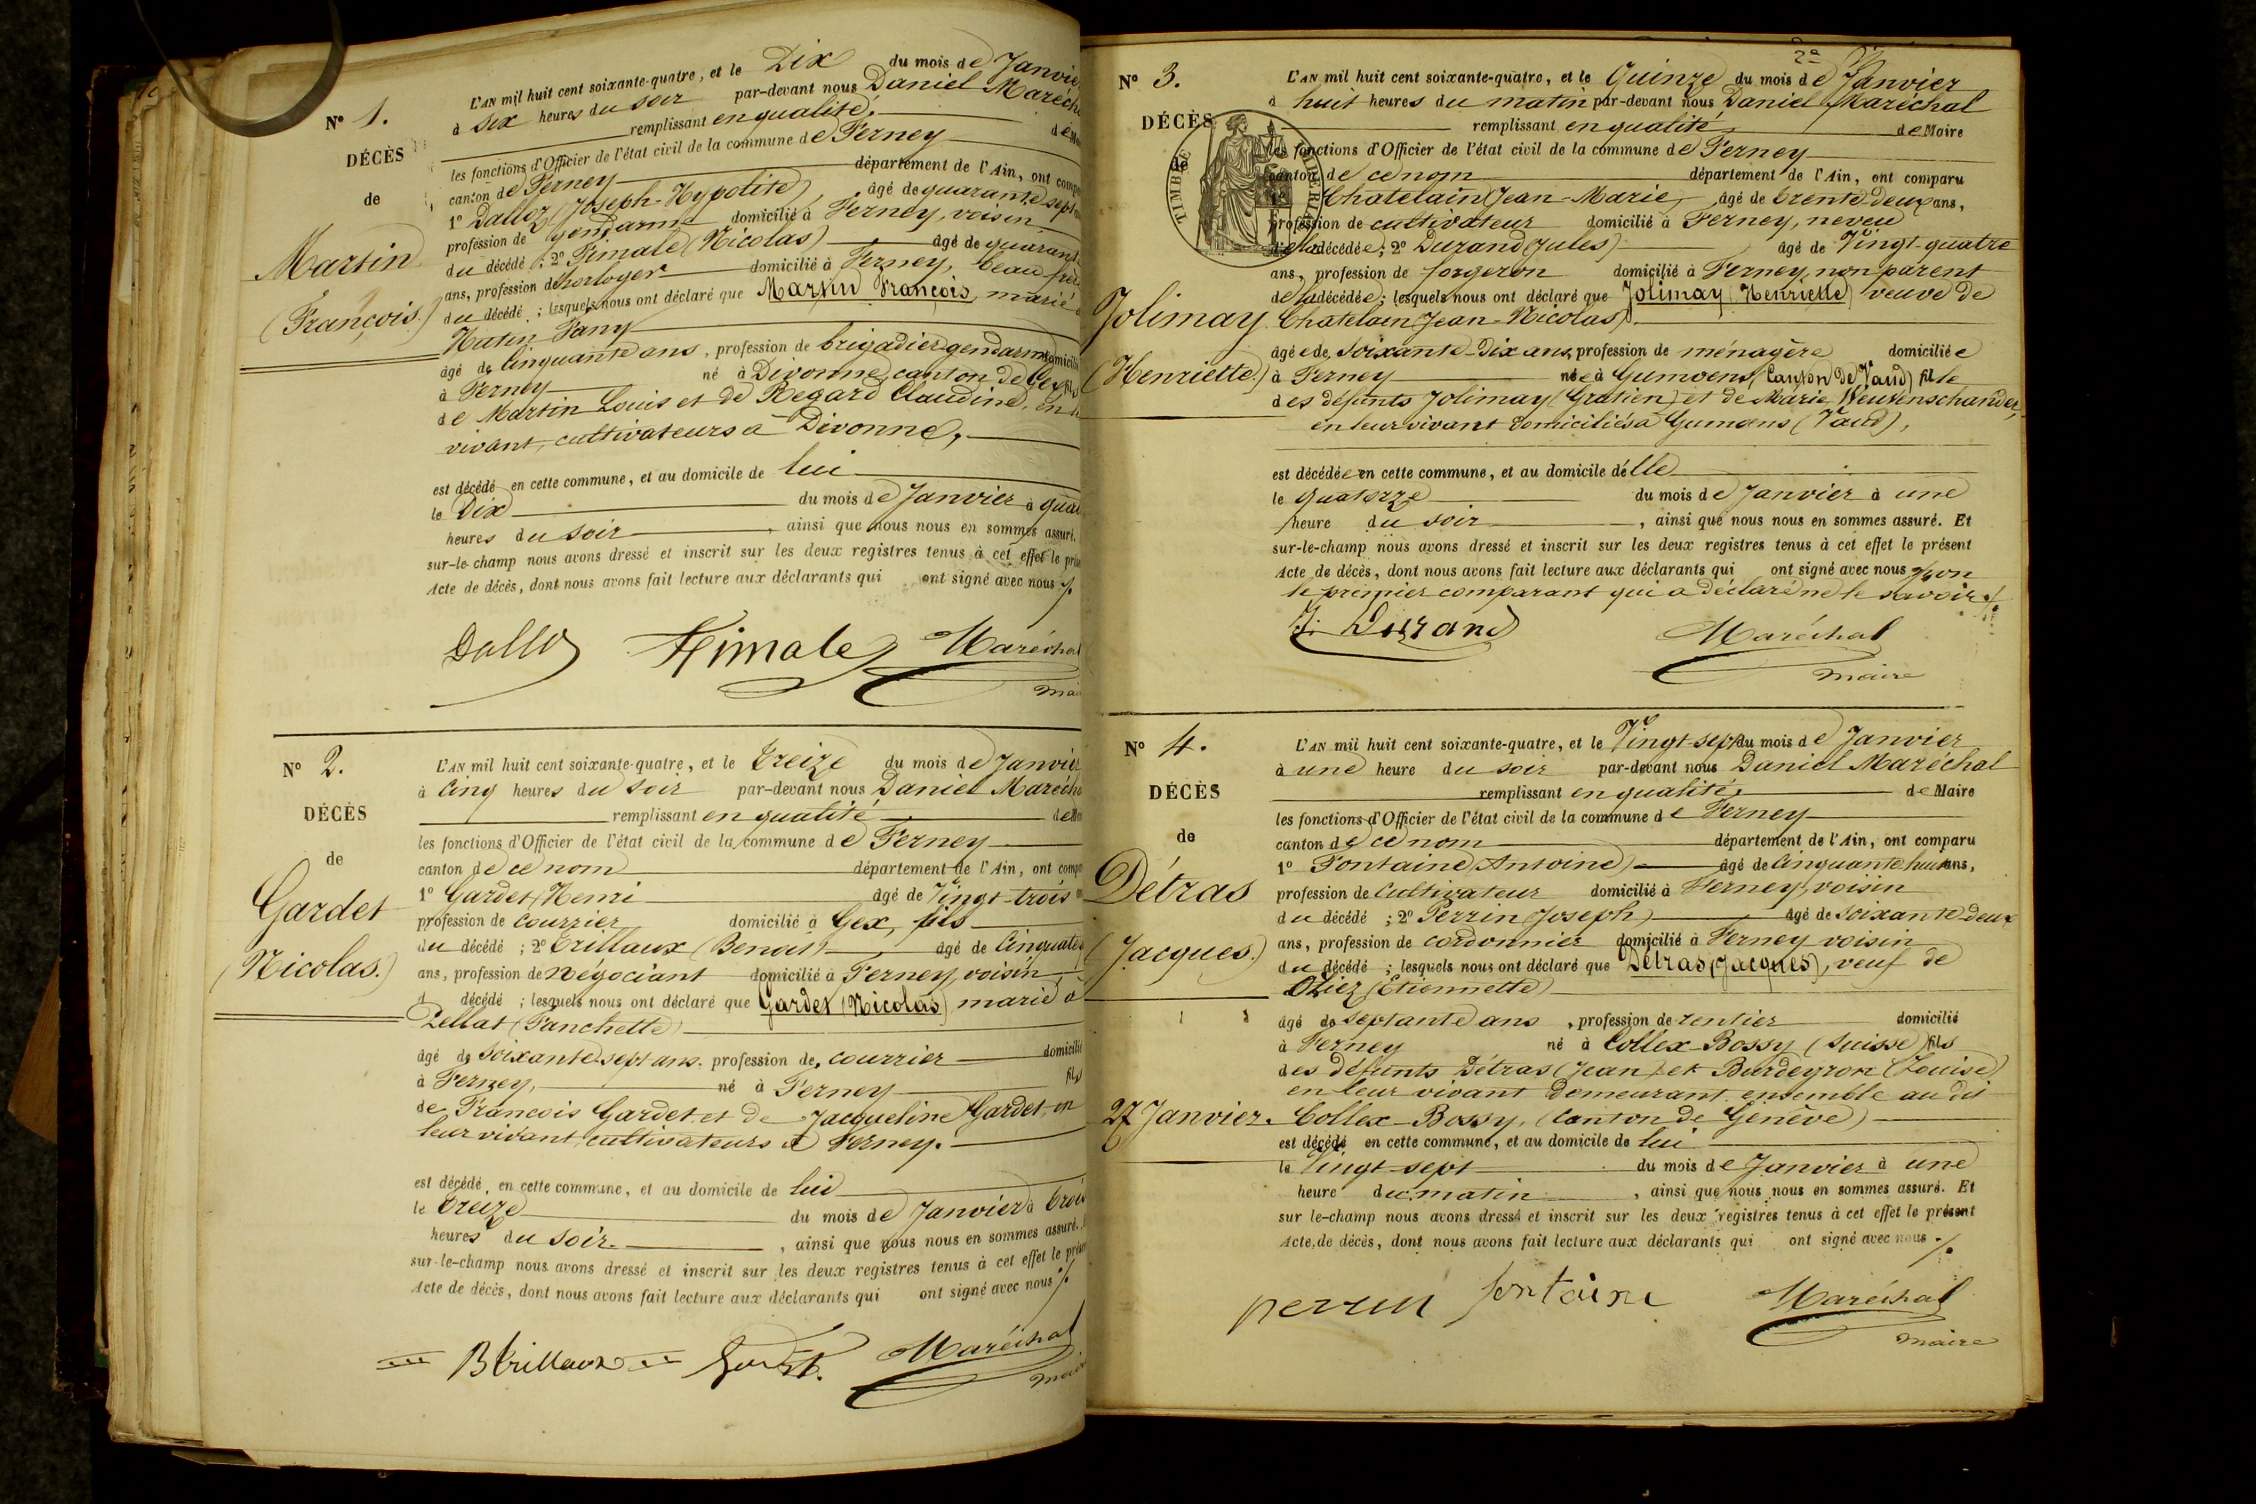 N° 1.
DÉCÈS
de
Martin
(François.)
L'AN mil huit cent soixante-quatre, et le Dix du mois de Janvie
à six heures du soir par-devant nous Daniel Maréch
remplissant en qualité, de M
les fonctions d'Officier de l'état civil de la commune de Ferney
canton de Ferney département de l'Ain, ont comp
1° Dalloz (Joseph-Hypolite), âgé de quarante sept
profession de gendarme domicilié à Ferney, voisin
du décédé ; 2° (Nicolas) âgé de quarant
ans, profession de horloger domicilié à Ferney, beau frè
du décédé ; lesquels nous ont déclaré que Martin François, marié
Fany
âgé de Cinquante ans, profession de brigadier gendarme domicili
à Ferney né à Divonne, canton de Gex, fils
de Martin Louis et de Regard Claudine, en
vivant, cultivateurs à Divonne,
est décédé en cette commune, et au domicile de lui
le Dix du mois de Janvier à qua
heures du soir, ainsi que nous nous en sommes assuré.
sur-le-champ nous avons dressé et inscrit sur les deux registres tenus à cet effet le prés
Acte de décès, dont nous avons fait lecture aux déclarants qui ont signé avec nous ./.
Maréchal
Mai
N° 2.
DÉCÈS
de
Gardet
(Nicolas.)
L'AN mil huit cent soixante-quatre, et le treize du mois de Janvier
à Cinq heures du soir par-devant nous Daniel Maréch
remplissant en qualité de M
les fonctions d'Officier de l'état civil de la commune de Ferney
canton de ce nom département de l'Ain, ont comp
1° Gardet, Henri âgé de Vingt-trois
profession de courrier domicilié à Gex, fils
du décédé ; 2° Trillaux (Benoit) âgé de Cinquante
ans, profession de négociant domicilié à Ferney, voisin
d décédé ; lesquels nous ont déclaré que Gardet (Nicolas) marié à
Pellat (Fanchette)
âgé de soixante sept ans, profession de, courrier domicilié
à Ferney, né à Ferney fils
de François Gardet et de Jacqueline Gardet, en
leur vivant, cultivateurs à Ferney.
est décédé en cette commune, et au domicile de lui
le treize du mois de Janvier à trois
heures du soir., ainsi que nous nous en sommes assuré.
sur-le-champ nous avons dressé et inscrit sur les deux registres tenus à cet effet le prése
Acte de décès, dont nous avons fait lecture aux déclarants qui ont signé avec nous ./.
B Trillaux Maréchal
Mai
2e
N° 3.
DÉCÈS
de
TIMBRE IMPÉRIAL
Jolimay
(Henriette.)
L'AN mil huit cent soixante-quatre, et le Quinze du mois de Janvier
à huit heures du matin par-devant nous Daniel Maréchal
remplissant en qualité, de Maire
les fonctions d'Officier de l'état civil de la commune de Ferney
canton de ce nom département de l'Ain, ont comparu
1° Chatelain (Jean-Marie, âgé de trente-deux ans,
profession de cultivateur domicilié à Ferney, neveu
de la décédée ; 2° Durand (Jules) âgé de Vingt-quatre
ans, profession de forgeron domicilié à Ferney, non parent
de la décédée ; lesquels nous ont déclaré que Jolimay (Henriette) veuve de
Chatelain (Jean-Nicolas).
âgée de, soixante-dix ans, profession de ménagère domiciliée
à Ferney née à Gumoens, (Canton de Vaud) fille
des défunts Jolimay (Gratien) et de Marie
en leur vivant domiciliés à Gumoens (Vaud),
est décédée en cette commune, et au domicile d'elle
le quatorze du mois de Janvier à une
heure du soir, ainsi que nous nous en sommes assuré. Et
sur-le-champ nous avons dressé et inscrit sur les deux registres tenus à cet effet le présent
Acte de décès, dont nous avons fait lecture aux déclarants qui ont signé avec nous, non
le premier comparant qui a déclaré ne le savoir ./.
J. Durand Maréchal
Maire
N° 4.
DÉCÈS
de
Détras
(Jacques.)
27 Janvier.
L'AN mil huit cent soixante-quatre, et le Vingt-sept du mois de Janvier
à une heure du soir par-devant nous Daniel Maréchal
remplissant en qualité, de Maire
les fonctions d'Officier de l'état civil de la commune de Ferney
canton de ce nom département de l'Ain, ont comparu
1° Fontaine (Antoine) âgé de Cinquante huit ans,
profession de Cultivateur domicilié à Ferney, voisin
du décédé ; 2° Perrin (Joseph) âgé de soixante deux
ans, profession de cordonnier domicilié à Ferney voisin
du décédé ; lesquels nous ont déclaré que Détras, (Jacques), veuf de
(Etiennette)
âgé de septante ans, profession de rentier domicilié
à Ferney né à Collex-Bossy (Suisse) fils
des défunts Détras (Jean) et Burdeyron (Louise)
en leur vivant demeurant ensemble au dit
Collex-Bossy, (Canton de Genève)
est décédé en cette commune, et au domicile de lui
le Vingt-sept du mois de Janvier à une
heure du matin, ainsi que nous nous en sommes assuré. Et
sur le-champ nous avons dressé et inscrit sur les deux registres tenus à cet effet le présent
Acte de décès, dont nous avons fait lecture aux déclarants qui ont signé avec nous ./.
perrin fontaine Maréchal
Maire